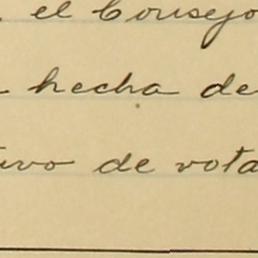 el Consejo
hecha de
tivo de vota